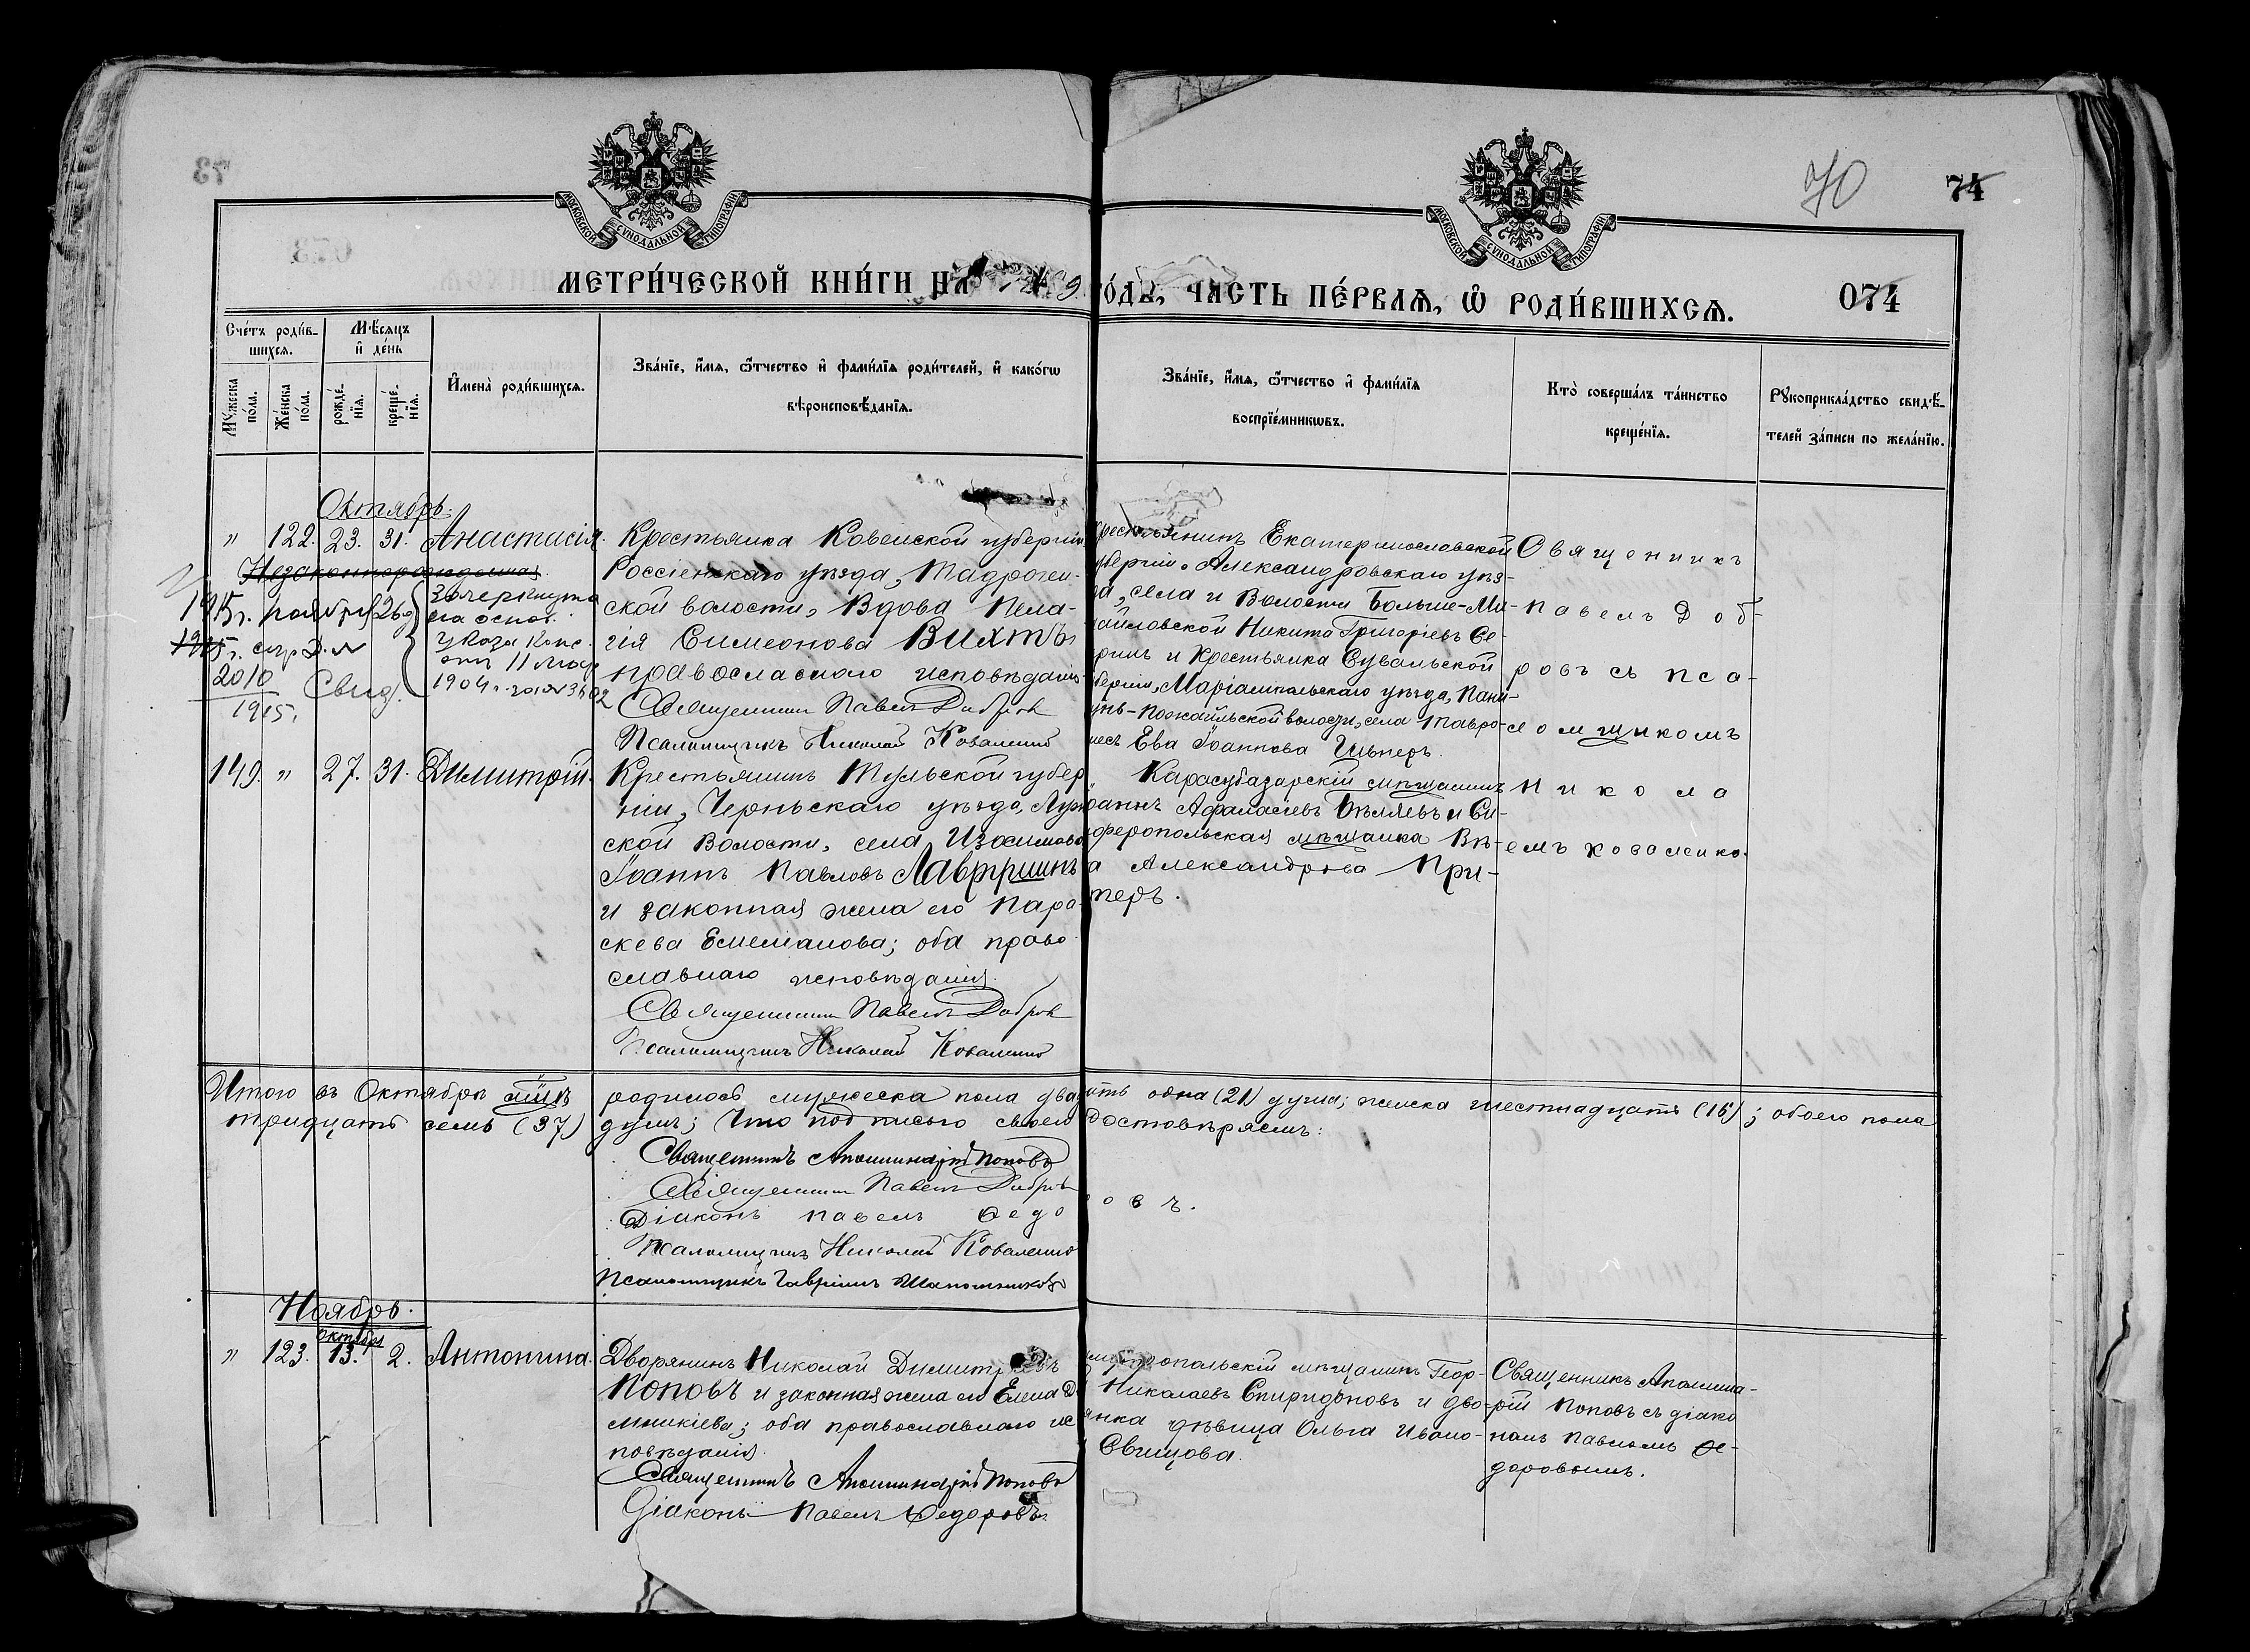 73
70
74
МОСКОВСКОЙ СУНОДАЛЬНОЙ ТИПОГРАФІИ
МОСКОВСКОЙ СУНОДАЛЬНОЙ ТИПОГРАФІИ
МЕТРИ́ЧЕСКОЙ КНИ́ГИ НА
ГО́ДЪ, ЧА́СТЬ ПЕ́РВАЯ, Ѽ РОДИ́ВШИХСЯ.
074
Сче́тъ роди́в-
шихся.
Мѣ́сяцъ
и҆ де́нь
Мꙋ́жеска по́ла.
Же́нска по́ла.
рожде́-
нїя.
креще́-
нїя.
И҆мена̀ роди́вшихся.
Зва́нїе, и҆́мя, ѻ҆́тчество и҆ фами́лїя роди́телей, и҆ како́гѡ
вѣроисповѣ́данїя.
Зва́нїе, и҆́мя, ѻ҆́тчество и҆ фами́лїя
воспрїе́мникѡвъ.
Кто̀ соверша́лъ та́инство
креще́нїя.
Рꙋкоприкла́дство свидѣ́-
телей за́писи по жела́нїю.
Октябрь.
" 122. 23. 31. Анастасія.
Незаконнорожденная
1915г. ноября 26
2010
1915г.
Свид.
Зачеркнуто
на основ.
указа Конс.
отъ 11 мар
1904 г. за № 3602
Крестьянка Ковенской губерніи
Россіенскаго уѣзда,
ской волости, Вдова Пела-
гія Симеонова Вихтъ,
православнаго исповѣданія
Священникъ Павелъ Добровъ
Псаломщикъ Николай Коваленко
Крестьянинъ Екатеринославской
губерніи, Александровскаго уѣз-
да, села и Волости Больше-Ми-
хайловской Никита Григоріевъ Се-
и Крестьянка Сувалкской
губерніи, Маріампольскаго уѣзда,
волости, села
Ева Іоаннова
Священникъ
Павелъ Доб-
ровъ съ пса-
ломщикомъ
Никола-
емъ Коваленко.
149. " 27. 31. Димитрій.
Крестьянинъ Тульской губер
ніи, Черньскаго уѣзда,
ской Волости, села
Іоаннъ Павловъ
и законная жена его Пара-
скева Емеліанова; оба право-
славнаго исповѣданія.
Священникъ Павелъ Добровъ
Псаломщикъ Николай Коваленко
Карасубазарскій мѣщанинъ
Іоаннъ Афанасіевъ Бѣляевъ и Си-
мферопольская мѣщанка Вѣ-
ра Александрова При-
теръ.
Итого въ Октябрѣ м-цѣ родилось мужеска пола двадцать одна (21) душа; женска шестнадцать (16); обоего пола
тридцать семь (37) душъ; Что подписью своею удостовѣряемъ:
Священникъ Аполлинарій Поповъ
Священникъ Павелъ Добровъ
Діаконъ Павелъ Ѳедоровъ.
Псаломщикъ Николай Коваленко
Псаломщикъ Гавріилъ Шапошниковъ
Ноябрь.
октября
" 123. 13. 2. Антонина.
Дворянинъ Николай Димитріевъ
Поповъ и законная жена его Елена До-
мникіева; оба православнаго ис-
повѣданія.
Священникъ Аполлинарій Поповъ
Діаконъ Павелъ Ѳедоровъ.
Симферопольскій мѣщанинъ Геор-
гій Николаевъ Спиридоновъ и дво-
рянка дѣвица Ольга Ивано-
ва Свищова.
Священникъ Аполлина-
рій Поповъ съ діако
номъ Павломъ Ѳе-
доровымъ.